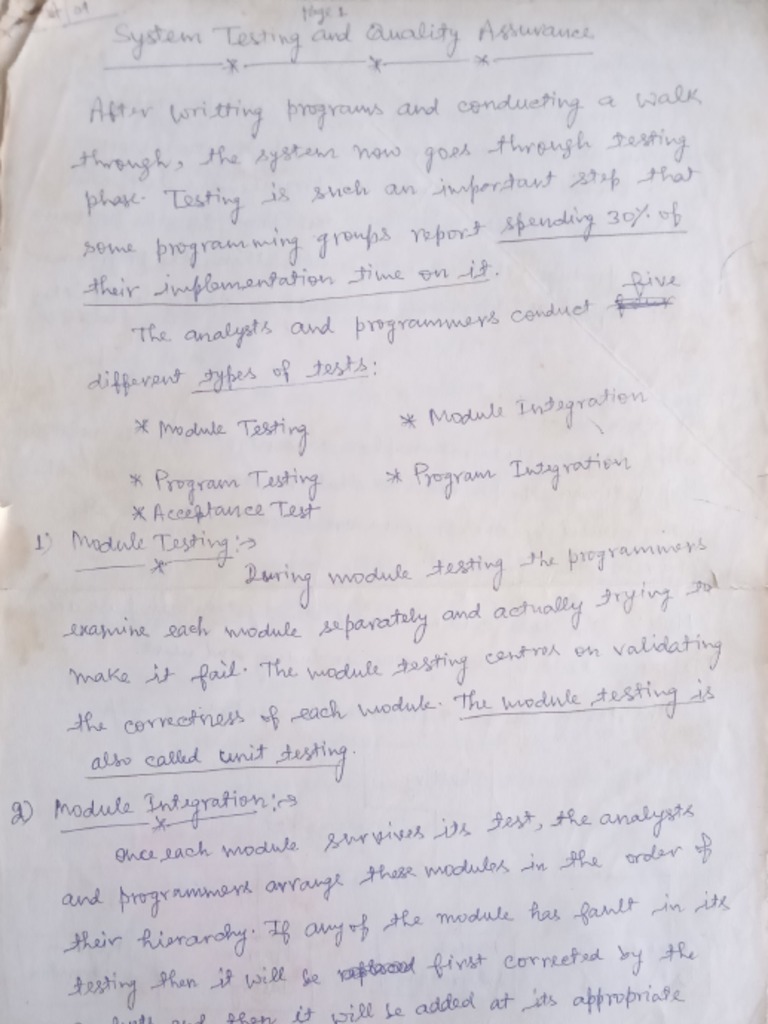 Page 1
System Testing and Quality Assurance
After writting programs and conducting a walk
through, the system now goes through testing
phase. Testing is such an important step that
some programming groups report spending 30% of
their implementation time on it.
The analysts and programmers conduct five
different types of tests:
* Module Testing * Module Integration
* Program Testing * Program Integration
* Acceptance Test
1) Module Testing:→
During module testing the programmers
examine each module separately and actually trying to
make it fail. The module testing centres on validating
the correctness of each module. The module testing is
also called unit testing.
2) Module Integration:→
Once each module survives its test, the analysts
and programmers arrange these modules in the order of
their hierarchy. If any of the module has fault in its
testing then it will be first corrected by the
and then it will be added at its appropriate